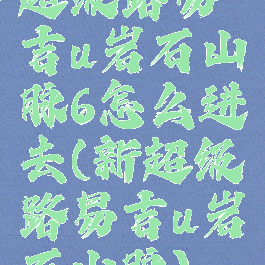 超级路易
吉u岩石山
脉6怎么进
去(新超级
路易吉u岩
石山脉)